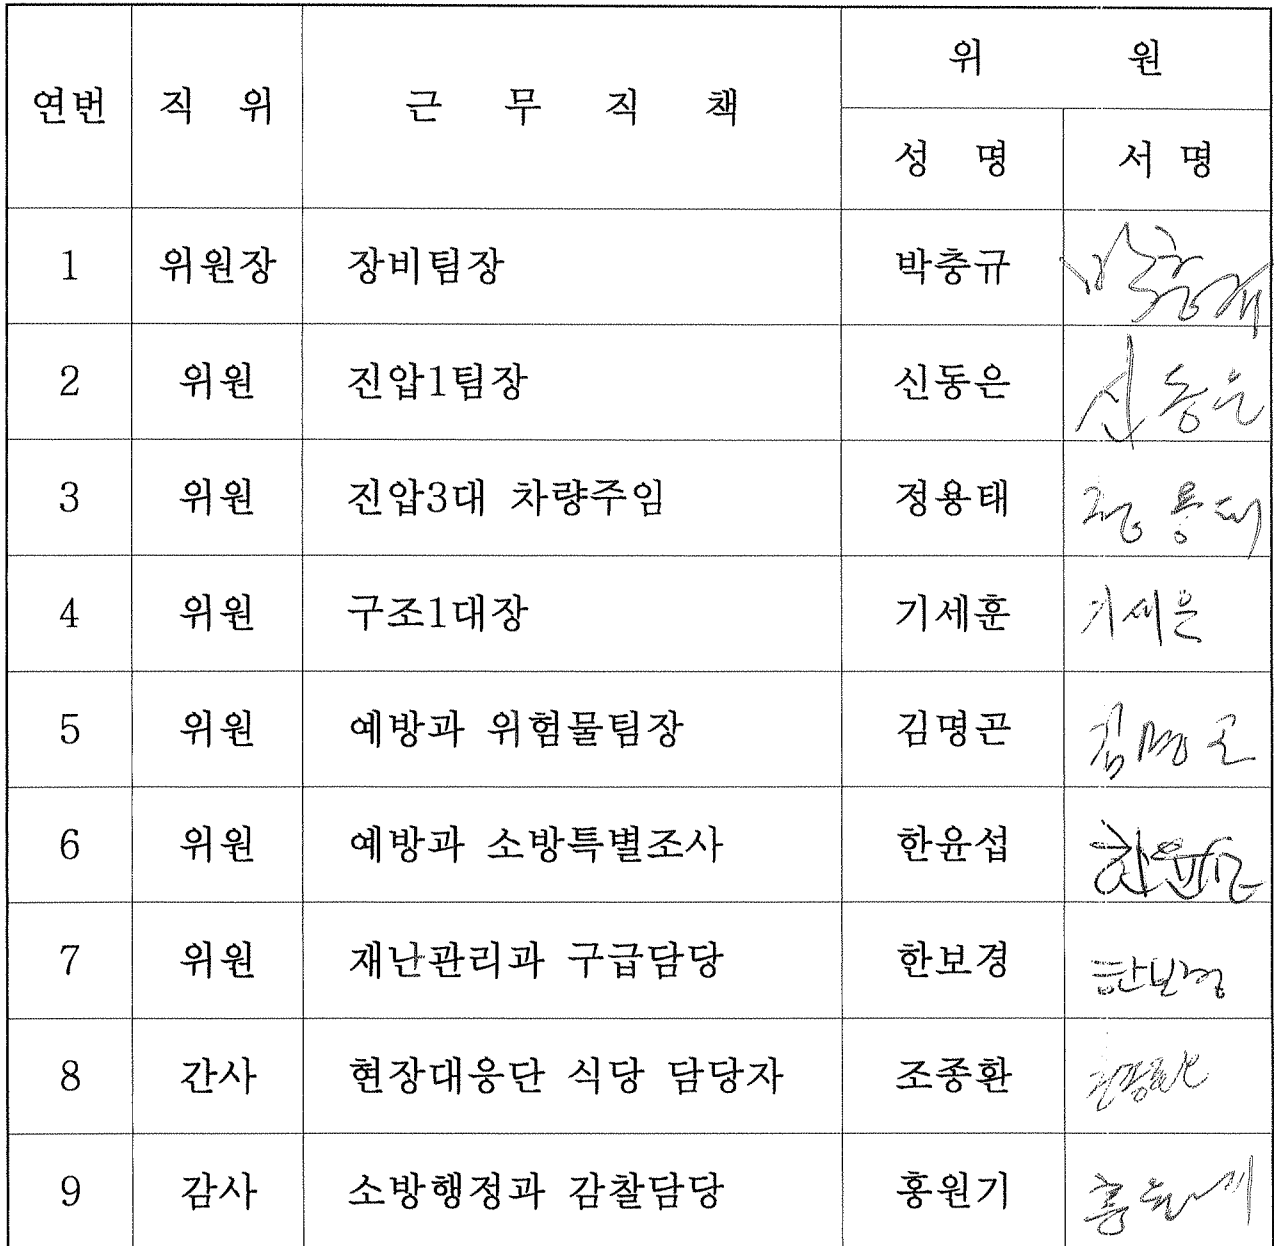 위 원
연번 직 위 근 무 직 책
성 명 서 명
1 위원장 장비팀장 박충규 박충규
2 위원 진압1팀장 신동은 신동은
3 위원 진압3대 차량주임 정용태 정용태
4 위원 구조1대장 기세훈 기세훈
5 위원 예방과 위험물팀장 김명곤 김명곤
6 위원 예방과 소방특별조사 한윤섭
7 위원 재난관리과 구급담당 한보경 한보경
8 간사 현장대응단 식당 담당자 조종환
9 감사 소방행정과 감찰담당 홍원기 홍원기